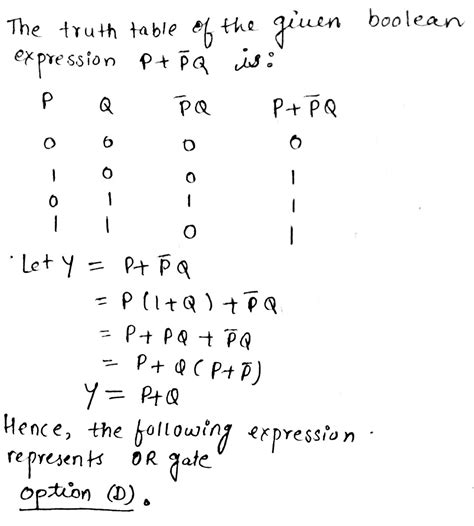 The truth table of the given boolean
expression P+P̅Q is:
P Q P̅Q P+P̅Q
0 0 0 0
1 0 0 1
0 1 1 1
1 1 0 1
Let Y = P+P̅Q
= P(1+Q)+P̅Q
= P+PQ+P̅Q
= P+Q(P+P̅)
Y = P+Q
Hence, the following expression.
represents OR gate
option (D).